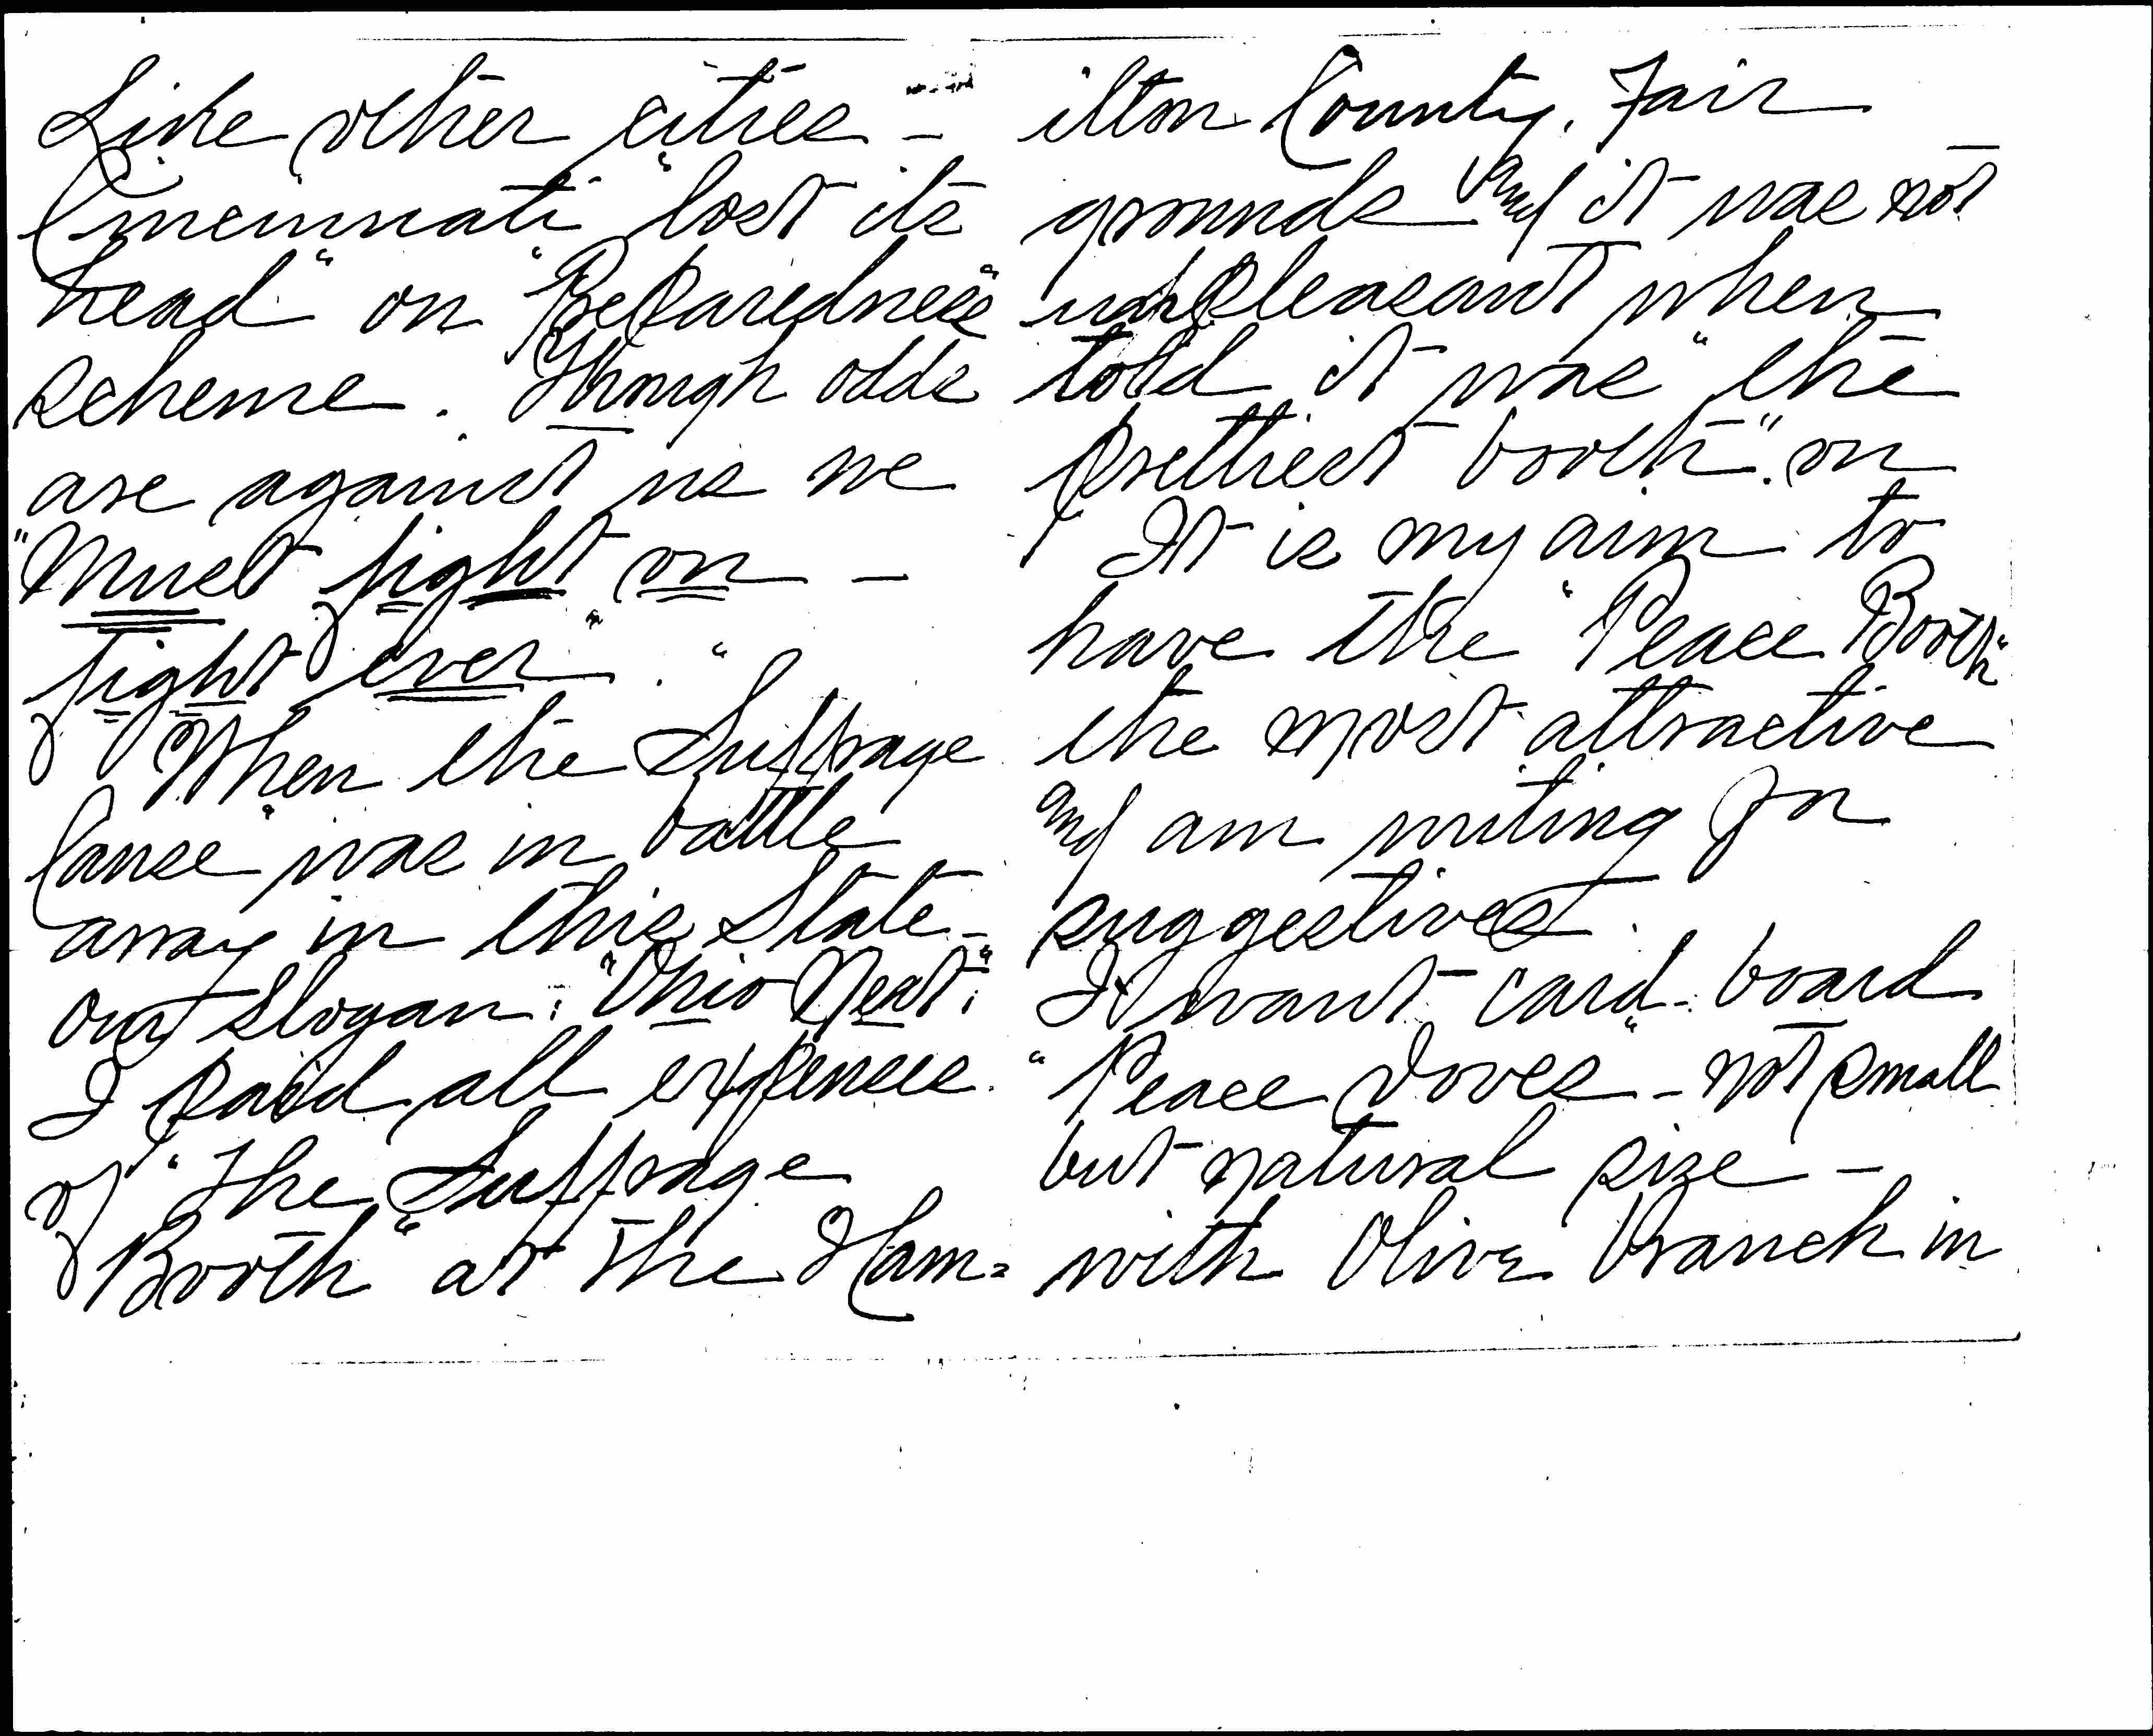 Like other cities –
Cincinnati "lost its
head" on "Preparedness"
scheme. Though odds
are against us we
"Must fight on –
fight ever".
When the "Suffrage
Cause" was in battle
array in this State –
our slogan: "Ohio Next":
I paid all expenses
of "The Suffrage
Booth" at the Ham=
ilton County, Fair
grounds and it was not
unpleasant when
told it was "the
prettiest booth". on
It is my aim to
have the "Peace Booth"
the most attractive
and am writing for
suggestives.
I want card-board
"Peace Doves" – not small
but natural size –
with Olive Branch in